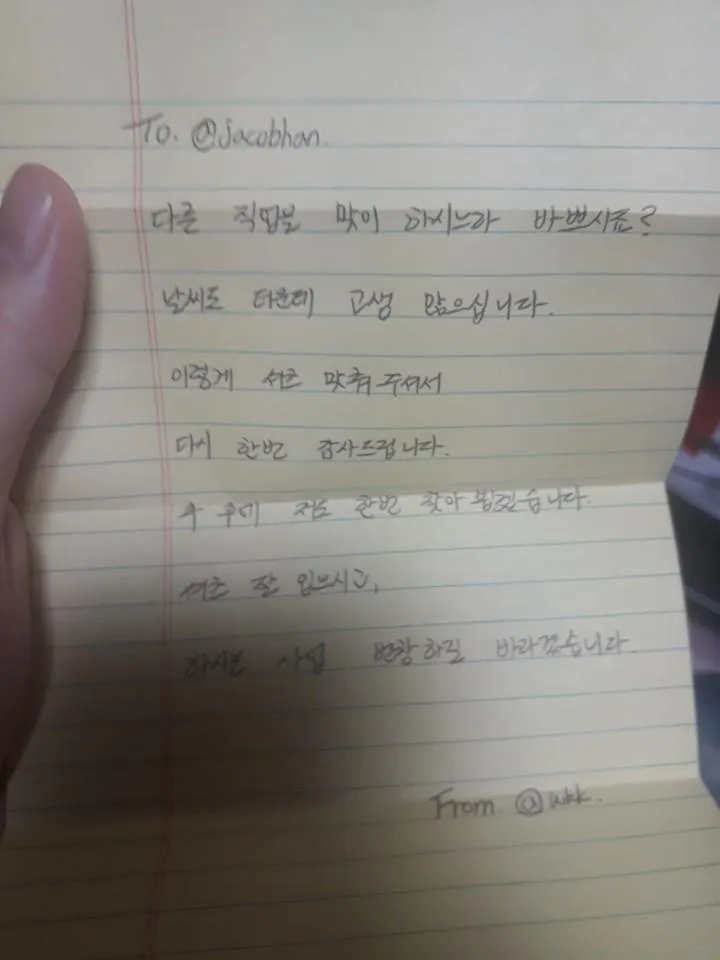 To. @jacobhan.
다른 직업을 많이 하시느라 바쁘시죠?
날씨도 더운데 고생 많으십니다.
이렇게 셔츠 맞춰주셔서
다시 한번 감사드립니다.
추후에 저도 한번 찾아뵙겠습니다.
셔츠 잘 입으시고,
하시는 사업 번창하길 바라겠습니다.
From @wkk.